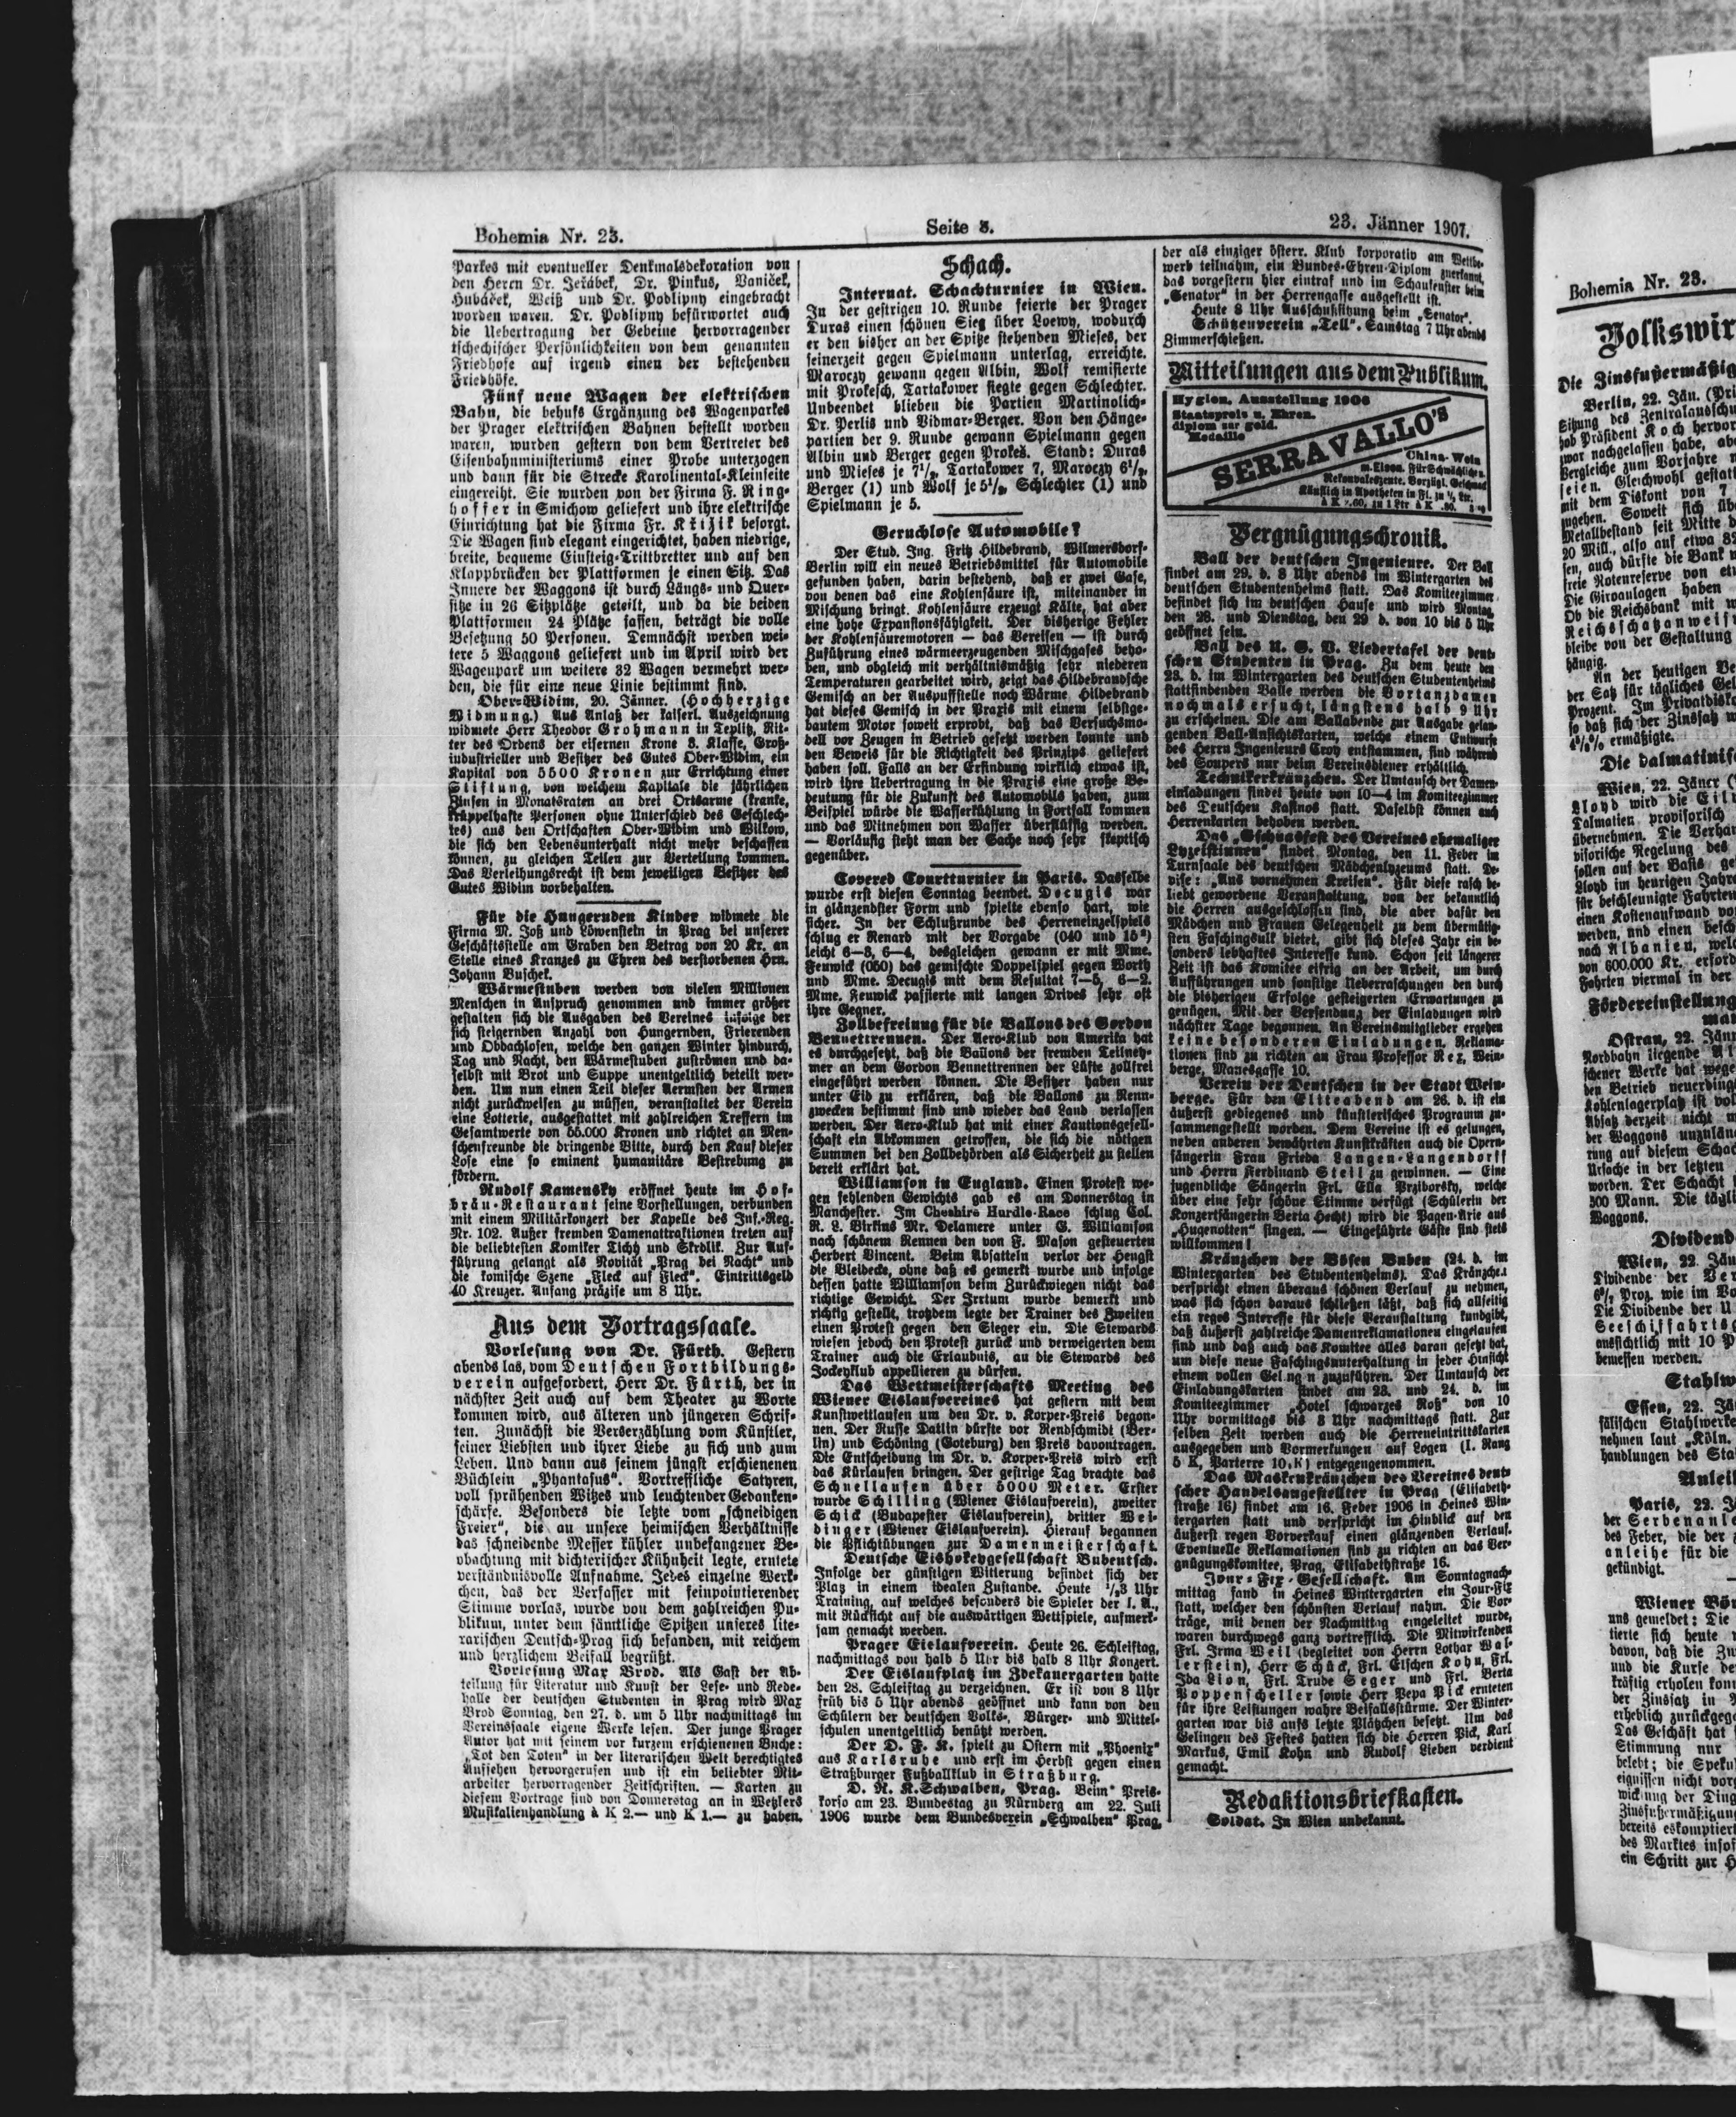 Bohemia Nr. 23.
Seite 8.
23. Jänner 1907.
Parkes mit eventueller Denkmalsdekoration von
den Herrn Dr. Jeřábek, Dr. Pinkus, Vaniček,
Hubáček, Weiß und Dr. Podlipny eingebracht
worden waren. Dr. Podlipny befürwortet auch
die Uebertragung der Gebeine hervorragender
tschechischer Persönlichkeiten von dem genannten
Friedhofe auf irgend einen der bestehenden
Friedhöfe.
Fünf neue Wagen der elektrischen
Bahn, die behufs Ergänzung des Wagenparkes
der Prager elektrischen Bahnen bestellt worden
waren, wurden gestern von dem Vertreter des
Eisenbahnministeriums einer Probe unterzogen
und dann für die Strecke Karolinental-Kleinseite
eingereiht. Sie wurden von der Firma F. Ring-
hoffer in Smichow geliefert und ihre elektrische
Einrichtung hat die Firma Fr. Křižik besorgt.
Die Wagen sind elegant eingerichtet, haben niedrige,
breite, bequeme Einsteig-Trittbretter und auf den
Klappbrücken der Plattformen je einen Sitz. Das
Innere der Waggons ist durch Längs- und Quer-
sitze in 26 Sitzplätze geteilt, und da die beiden
Plattformen 24 Plätze fassen, beträgt die volle
Besetzung 50 Personen. Demnächst werden wei-
tere 5 Waggons geliefert und im April wird der
Wagenpark um weitere 32 Wagen vermehrt wer-
den, die für eine neue Linie bestimmt sind.
Ober-Widim, 20. Jänner. (Hochherzige
Widmung.) Aus Anlaß der kaiserl. Auszeichnung
widmete Herr Theodor Grohmann in Teplitz, Rit-
ter des Ordens der eisernen Krone 3. Klasse, Groß-
industrieller und Besitzer des Gutes Ober-Widim, ein
Kapital von 5500 Kronen zur Errichtung einer
Stiftung, von welchem Kapitale die jährlichen
Zinsen in Monatsraten an drei Ortsarme (kranke,
krüppelhafte Personen ohne Unterschied des Geschlech-
tes) aus den Ortschaften Ober-Widim und Wilkow,
die sich den Lebensunterhalt nicht mehr beschaffen
können, zu gleichen Teilen zur Verteilung kommen.
Das Verleihungsrecht ist dem jeweiligen Besitzer des
Gutes Widim vorbehalten.
Für die Hungernden Kinder widmete die
Firma M. Joß und Löwenstein in Prag bei unserer
Geschäftsstelle am Graben den Betrag von 20 Kr. an
Stelle eines Kranzes zu Ehren des verstorbenen Hrn.
Johann Buschek.
Wärmestuben werden von vielen Millionen
Menschen in Anspruch genommen und immer größer
gestalten sich die Ausgaben des Vereines infolge der
sich steigernden Anzahl von Hungernden, Frierenden
und Obdachlosen, welche den ganzen Winter hindurch,
Tag und Nacht, den Wärmestuben zuströmen und da-
selbst mit Brot und Suppe unentgeltlich beteilt wer-
den. Um nun einen Teil dieser Aermsten der Armen
nicht zurückweisen zu müssen, veranstaltet der Verein
eine Lotterie, ausgestattet mit zahlreichen Treffern im
Gesamtwerte von 55.000 Kronen und richtet an Men-
schenfreunde die dringende Bitte, durch den Kauf dieser
Lose eine so eminent humanitäre Bestrebung zu
fördern.
Rudolf Kamensky eröffnet heute im Hof-
bräu-Restaurant seine Vorstellungen, verbunden
mit einem Militärkonzert der Kapelle des Inf.-Reg.
Nr. 102. Außer fremden Damenattraktionen treten auf
die beliebtesten Komiker Tichy und Skrdlik. Zur Auf-
führung gelangt als Novität „Prag bei Nacht" und
die komische Szene „Fleck auf Fleck". Eintrittsgeld
40 Kreuzer. Anfang präzise um 8 Uhr.
Aus dem Vortragssaale.
Vorlesung von Dr. Fürth. Gestern
abends las, vom Deutschen Fortbildungs-
verein aufgefordert, Herr Dr. Fürth, der in
nächster Zeit auch auf dem Theater zu Worte
kommen wird, aus älteren und jüngeren Schrif-
ten. Zunächst die Verserzählung vom Künstler,
seiner Liebsten und ihrer Liebe zu sich und zum
Leben. Und dann aus seinem jüngst erschienenen
Büchlein „Phantasus". Vortreffliche Satyren,
voll sprühenden Witzes und leuchtender Gedanken-
schärfe. Besonders die letzte vom „schneidigen
Freier", die an unsere heimischen Verhältnisse
das schneidende Messer kühler unbefangener Be-
obachtung mit dichterischer Kühnheit legte, erntete
verständnisvolle Aufnahme. Jedes einzelne Werk-
chen, das der Verfasser mit feinpointierender
Stimme vorlas, wurde von dem zahlreichen Pu-
blikum, unter dem sämtliche Spitzen unseres lite-
rarischen Deutsch-Prag sich befanden, mit reichem
und herzlichem Beifall begrüßt.
Vorlesung Max Brod. Als Gast der Ab-
teilung für Literatur und Kunst der Lese- und Rede-
halle der deutschen Studenten in Prag wird Max
Brod Sonntag, den 27. d. um 5 Uhr nachmittags im
Vereinssaale eigene Werke lesen. Der junge Prager
Autor hat mit seinem vor kurzem erschienenen Buche:
„Tot den Toten" in der literarischen Welt berechtigtes
Aufsehen hervorgerufen und ist ein beliebter Mit-
arbeiter hervorragender Zeitschriften. — Karten zu
diesem Vortrage sind von Donnerstag an in Wetzlers
Musikalienhandlung à K 2.— und K 1.— zu haben.
Schach.
Internat. Schachturnier in Wien.
In der gestrigen 10. Runde feierte der Prager
Duras einen schönen Sieg über Loewy, wodurch
er den bisher an der Spitze stehenden Mieses, der
seinerzeit gegen Spielmann unterlag, erreichte.
Maroczy gewann gegen Albin, Wolf remisierte
mit Prokesch, Tartakower siegte gegen Schlechter.
Unbeendet blieben die Partien Martinolich-
Dr. Perlis und Vidmar-Berger. Von den Hänge-
partien der 9. Runde gewann Spielmann gegen
Albin und Berger gegen Prokes. Stand: Duras
und Mieses je 7½, Tartakower 7, Maroczy 6½,
Berger (1) und Wolf je 5½, Schlechter (1) und
Spielmann je 5.
Geruchlose Automobile?
Der Stud. Ing. Fritz Hildebrand, Wilmersdorf-
Berlin will ein neues Betriebsmittel für Automobile
gefunden haben, darin bestehend, daß er zwei Gase,
von denen das eine Kohlensäure ist, miteinander in
Mischung bringt. Kohlensäure erzeugt Kälte, hat aber
eine hohe Expansionsfähigkeit. Der bisherige Fehler
der Kohlensäuremotoren — das Vereisen — ist durch
Zuführung eines wärmeerzeugenden Mischgases beho-
ben, und obgleich mit verhältnismäßig sehr niederen
Temperaturen gearbeitet wird, zeigt das Hildebrandsche
Gemisch an der Auspuffstelle noch Wärme. Hildebrand
hat dieses Gemisch in der Praxis mit einem selbstge-
bautem Motor soweit erprobt, daß das Versuchsmo-
dell vor Zeugen in Betrieb gesetzt werden konnte und
den Beweis für die Richtigkeit des Prinzips geliefert
haben soll. Falls an der Erfindung wirklich etwas ist,
wird ihre Uebertragung in die Praxis eine große Be-
deutung für die Zukunft des Automobils haben, zum
Beispiel würde die Wasserkühlung in Fortfall kommen
und das Mitnehmen von Wasser überflüssig werden.
— Vorläufig steht man der Sache noch sehr skeptisch
gegenüber.
Covered Courtturnier in Paris. Dasselbe
wurde erst diesen Sonntag beendet. Decugis war
in glänzendster Form und spielte ebenso hart, wie
sicher. In der Schlußrunde des Herreneinzelspiels
schlug er Renard mit der Vorgabe (040 und 15
leicht 6—3, 6—4, desgleichen gewann er mit Mme.
Fenwick (050) das gemischte Doppelspiel gegen Worth
und Mme. Decugis mit dem Resultat 7—5, 6—2.
Mme. Fenwick passierte mit langen Drives sehr oft
ihre Gegner.
Zollbefreiung für die Ballons des Gordon
Bennettrennen. Der Aero-Klub von Amerika hat
es durchgesetzt, daß die Ballons der fremden Teilneh-
mer an dem Gordon Bennettrennen der Lüfte zollfrei
eingeführt werden können. Die Besitzer haben nur
unter Eid zu erklären, daß die Ballons zu Renn-
zwecken bestimmt sind und wieder das Land verlassen
werden. Der Aero-Klub hat mit einer Kautionsgesell-
schaft ein Abkommen getroffen, die sich die nötigen
Summen bei den Zollbehörden als Sicherheit zu stellen
bereit erklärt hat.
Williamson in England. Einen Protest we-
gen fehlenden Gewichts gab es am Donnerstag in
Manchester. Im Cheshire Hurdle-Race schlug Col.
R. L. Birkins Mr. Delamere unter G. Williamson
nach schönem Rennen den von F. Mason gesteuerten
Herbert Vincent. Beim Absatteln verlor der Hengst
die Bleidecke, ohne daß es gemerkt wurde und infolge
dessen hatte Williamson beim Zurückwiegen nicht das
richtige Gewicht. Der Irrtum wurde bemerkt und
richtig gestellt, trotzdem legte der Trainer des Zweiten
einen Protest gegen den Sieger ein. Die Stewards
wiesen jedoch den Protest zurück und verweigerten dem
Trainer auch die Erlaubnis, an die Stewards des
Jockeyklub appellieren zu dürfen.
Das Wettmeisterschafts Meeting des
Wiener Eislaufvereines hat gestern mit dem
Kunstwettlaufen um den Dr. v. Korper-Preis begon-
nen. Der Russe Datlin dürfte vor Rendschmidt (Ber-
lin) und Schöning (Goteburg) den Preis davontragen.
Die Entscheidung im Dr. v. Korper-Preis wird erst
das Kürlaufen bringen. Der gestrige Tag brachte das
Schnellaufen über 5000 Meter. Erster
wurde Schilling (Wiener Eislaufverein), zweiter
Schick (Budapester Eislaufverein), dritter Wei-
dinger (Wiener Eislaufverein). Hierauf begannen
die Pflichtübungen zur Damenmeisterschaft.
Deutsche Eishokeygesellschaft Bubentsch.
Infolge der günstigen Witterung befindet sich der
Platz in einem idealen Zustande. Heute ½3 Uhr
Training, auf welches besonders die Spieler der I. A.,
mit Rücksicht auf die auswärtigen Wettspiele, aufmerk-
sam gemacht werden.
Prager Eislaufverein. Heute 26. Schleiftag,
nachmittags von halb 5 Uhr bis halb 8 Uhr Konzert.
Der Eislaufplatz im Zdekauergarten hatte
den 28. Schleiftag zu verzeichnen. Er ist von 8 Uhr
früh bis 5 Uhr abends geöffnet und kann von den
Schülern der deutschen Volks-, Bürger- und Mittel-
schulen unentgeltlich benützt werden.
Der D. F. K. spielt zu Ostern mit „Phoenix"
aus Karlsruhe und erst im Herbst gegen einen
Straßburger Fußballklub in Straßburg.
D. R. K. Schwalben, Prag. Beim Preis-
korso am 23. Bundestag zu Nürnberg am 22. Juli
1906 wurde dem Bundesverein „Schwalben" Prag,
der als einziger österr. Klub korporativ am Wettbe-
werb teilnahm, ein Bundes-Ehren-Diplom zuerkannt,
das vorgestern hier eintraf und im Schaufenster beim
„Senator" in der Herrengasse ausgestellt ist.
Heute 8 Uhr Ausschußsitzung beim „Senator".
Schützenverein „Tell". Samstag 7 Uhr abends
Zimmerschießen.
Mitteilungen aus dem Publikum.
Hygien. Ausstellung 1906
Staatspreis u. Ehren-
diplom zur gold.
Medaille
SERRAVALLO'S
China-Wein
m. Eisen. Für Schwächliche,
Rekonvaleszente. Vorzügl. Geschmack
Käuflich in Apotheken in Fl. zu ½ Ltr.
Vergnügungschronik.
Ball der deutschen Ingenieure. Der Ball
findet am 29. d. 8 Uhr abends im Wintergarten des
deutschen Studentenheims statt. Das Komiteezimmer
befindet sich im deutschen Hause und wird Montag,
den 28. und Dienstag, den 29 d. von 10 bis 5 Uhr
geöffnet sein.
Ball des U. G. V. Liedertafel der deut-
schen Studenten in Prag. Zu dem heute den
23. d. im Wintergarten des deutschen Studentenheims
stattfindenden Balle werden die Vortanzdamen
nochmals ersucht, längstens halb 9 Uhr
zu erscheinen. Die am Ballabende zur Ausgabe gelan-
genden Ball-Ansichtskarten, welche einem Entwurfe
des Herrn Ingenieurs Croy entstammen, sind während
des Soupers nur beim Vereinsdiener erhältlich.
Technikerkränzchen. Der Umtausch der Damen-
einladungen findet heute von 10—4 im Komiteezimmer
des Deutschen Kasinos statt. Daselbst können auch
Herrenkarten behoben werden.
Das „Gschnasfest des Vereines ehemaliger
Lyzeistinnen" findet Montag, den 11. Feber im
Turnsaale des deutschen Mädchenlyzeums statt. De-
vise: „Aus vornehmen Kreisen". Für diese rasch be-
liebt gewordene Veranstaltung, von der bekanntlich
die Herren ausgeschlossen sind, die aber dafür den
Mädchen und Frauen Gelegenheit zu dem übermütig-
sten Faschingsulk bietet, gibt sich dieses Jahr ein be-
sonders lebhaftes Interesse kund. Schon seit längerer
Zeit ist das Komitee eifrig an der Arbeit, um durch
Aufführungen und sonstige Ueberraschungen den durch
die bisherigen Erfolge gesteigerten Erwartungen zu
genügen. Mit der Versendung der Einladungen wird
nächster Tage begonnen. An Vereinsmitglieder ergehen
keine besonderen Einladungen. Reklama-
tionen sind zu richten an Frau Professor Rex, Wein-
berge, Manesgasse 10.
Verein der Deutschen in der Stadt Wein-
berge. Für den Eliteabend am 26. d. ist ein
äußerst gediegenes und künstlerisches Programm zu-
sammengestellt worden. Dem Vereine ist es gelungen,
neben anderen bewährten Kunstkräften auch die Opern-
sängerin Frau Frieda Langen-Langendorff
und Herrn Ferdinand Steil zu gewinnen. — Eine
jugendliche Sängerin Frl. Ella Prziborsky, welche
über eine sehr schöne Stimme verfügt (Schülerin der
Konzertsängerin Berta Hecht) wird die Pagen-Arie aus
„Hugenotten" singen. — Eingeführte Gäste sind stets
willkommen!
Kränzchen der Bösen Buben (24. d. im
Wintergarten des Studentenheims). Das Kränzchen
verspricht einen überaus schönen Verlauf zu nehmen,
was sich schon daraus schließen läßt, daß sich allseitig
ein reges Interesse für diese Veranstaltung kundgibt,
daß äußerst zahlreiche Damenreklamationen eingelaufen
sind und daß auch das Komitee alles daran gesetzt hat,
um diese neue Faschingsunterhaltung in jeder Hinsicht
einem vollen Gelingen zuzuführen. Der Umtausch der
Einladungskarten findet am 23. und 24. d. im
Komiteezimmer „Hotel schwarzes Roß" von 10
Uhr vormittags bis 8 Uhr nachmittags statt. Zur
selben Zeit werden auch die Herreneintrittskarten
ausgegeben und Vormerkungen auf Logen (I. Rang
5 K, Parterre 10 K) entgegengenommen.
Das Maskenkränzchen des Vereines deut-
scher Handelsangestellter in Prag (Elisabeth-
straße 16) findet am 16. Feber 1906 in Heines Win-
tergarten statt und verspricht im Hinblick auf den
äußerst regen Vorverkauf einen glänzenden Verlauf.
Eventuelle Reklamationen sind zu richten an das Ver-
gnügungskomitee, Prag, Elisabethstraße 16.
Jour-Fix-Gesellschaft. Am Sonntagnach-
mittag fand in Heines Wintergarten ein Jour-Fix
statt, welcher den schönsten Verlauf nahm. Die Vor-
träge, mit denen der Nachmittag eingeleitet wurde,
waren durchwegs ganz vortrefflich. Die Mitwirkenden
Frl. Irma Weil (begleitet von Herrn Lothar Wal-
lerstein), Herr Schück, Frl. Elschen Kohn, Frl.
Ida Lion, Frl. Trude Seger und Frl. Berta
Poppenscheller sowie Herr Pepa Pick ernteten
für ihre Leistungen wahre Beifallsstürme. Der Winter-
garten war bis aufs letzte Plätzchen besetzt. Um das
Gelingen des Festes hatten sich die Herren Pick, Karl
Markus, Emil Kohn und Rudolf Lieben verdient
gemacht.
Redaktionsbriefkasten.
Soldat. In Wien unbekannt.
Bohemia Nr. 23.
Volkswir
Die Zinsfußermäßig
Berlin, 22. Jän. (Pri
Sitzung des Zentralausschu
hob Präsident Koch hervor
zwar nachgelassen habe, abe
Vergleiche zum Vorjahre n
seien. Gleichwohl gestatt
mit dem Diskont von 7
zugehen. Soweit sich üb
Metallbestand seit Mitte d
20 Mill., also auf etwa 82
sen, auch dürfte die Bank u
freie Notenreserve von etw
Die Giroanlagen haben
Ob die Reichsbank mit w
Reichsschatzanweis
bleibe von der Gestaltung
hängig.
An der heutigen Bö
der Satz für tägliches Gel
Prozent. Im Privatdisko
so daß sich der Zinssatz w
ermäßigte.
Die dalmatinis
Wien, 22. Jäner (
Lloyd wird die Eil
Dalmatien provisorisch
übernehmen. Die Verha
visorische Regelung des
sollen auf der Basis ge
Lloyd im heurigen Jahre
für beschleunigte Fahrten
einen Kostenaufwand vo
werden, und einen besch
nach Albanien, welc
von 600.000 Kr. erford
Fahrten viermal in der
Fördereinstellung
Ostrau, 22. Jän
Nordbahn liegende Al
schener Werke hat wege
den Betrieb neuerding
Kohlenlagerplatz ist vol
Absatz derzeit nicht m
der Waggons unzulän
rung auf diesem Schac
Ursache in der letzten
worden. Der Schacht
300 Mann. Die tägli
Waggons.
Dividend
Wien, 22. Jän
Dividende der Ver
Proz. wie im Vo
Die Dividende der U
Seeschiffahrtsg
aussichtlich mit 10 P
bemessen werden.
Stahlw
Essen, 22. Jä
fälischen Stahlwerke
nehmen laut „Köln.
handlungen des Sta
Anleih
Paris, 22. J
der Serbenanle
des Feber, die der
anleihe für die
gekündigt.
Wiener Bör
uns gemeldet: Die
tierte sich heute
davon, daß die Zu
und die Kurse de
kräftig erholen kon
der Zinssatz in
erheblich zurückgege
Das Geschäft hat
Stimmung nur
belebt; die Speku
eignissen nicht vor
wicklung der Ding
Zinsfußermäßigung
bereits eskomptiert
des Marktes insof
ein Schritt zur H